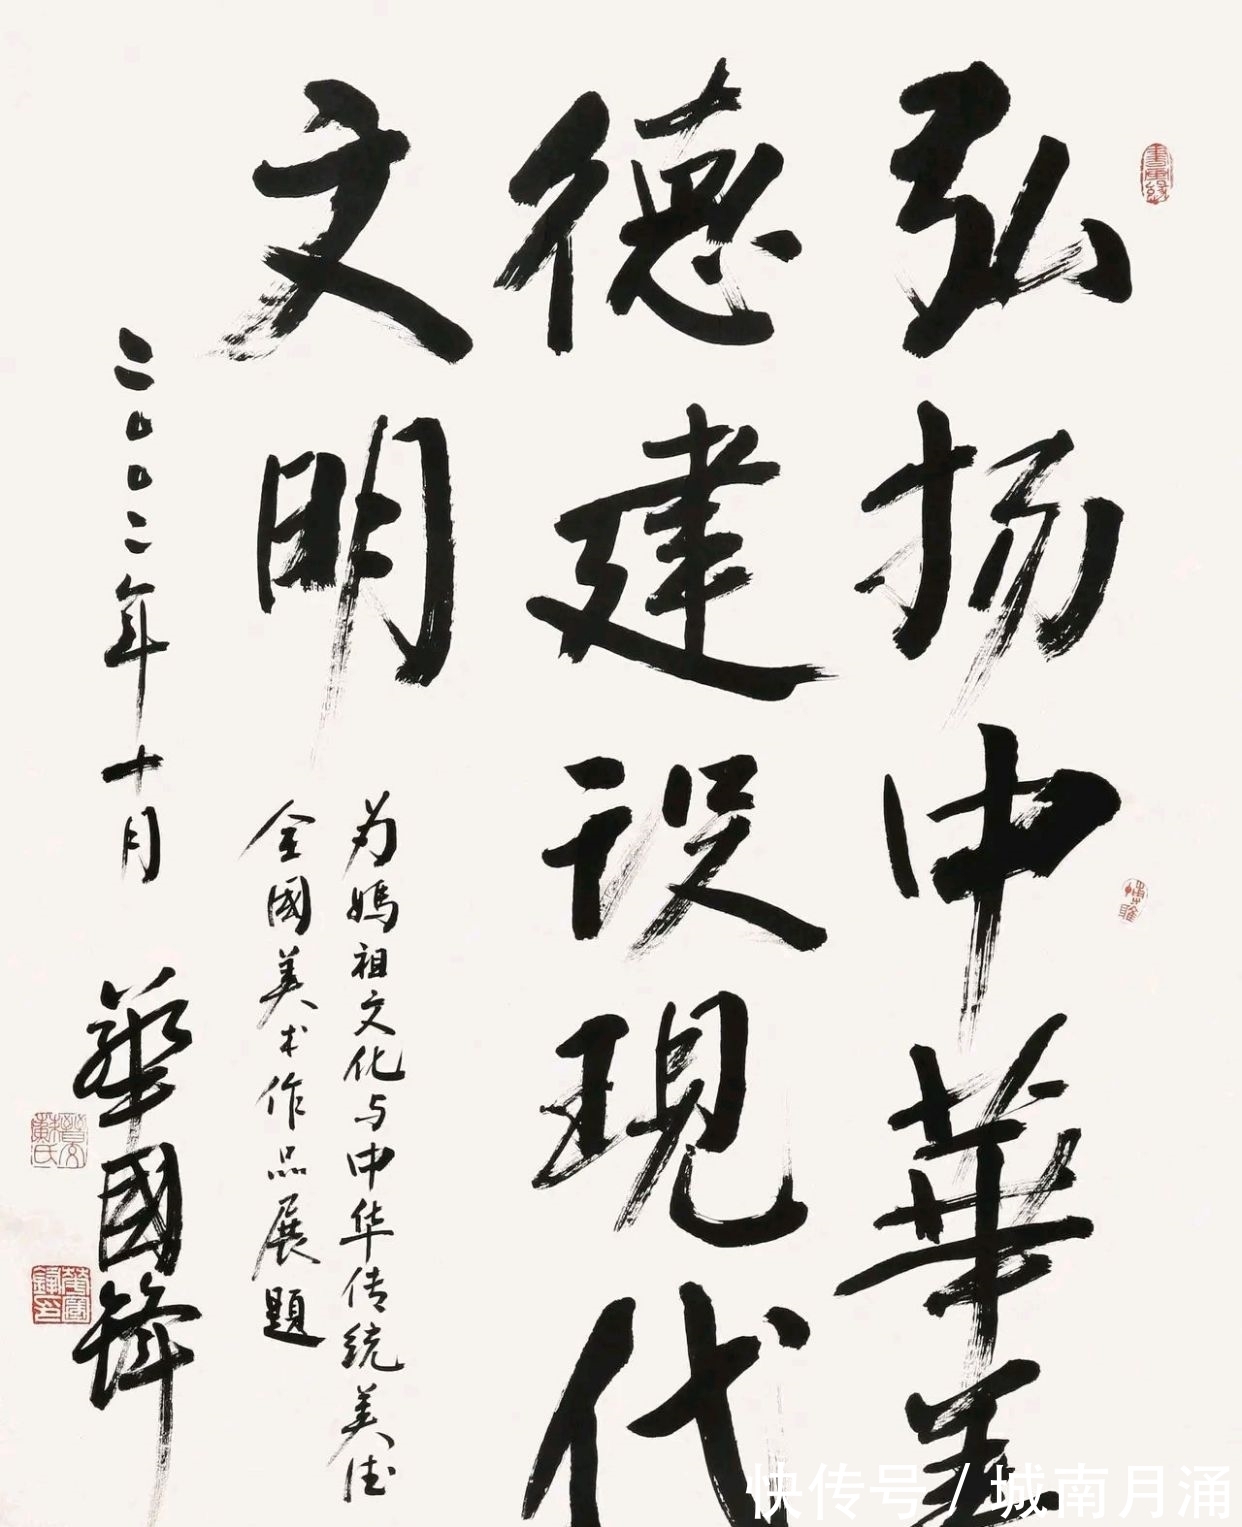 弘扬中華美
德建设現代
文明
为媽祖文化与中华传统美德
全國美术作品展題
二〇〇二年十月
華國锋
快传号/城南月涌